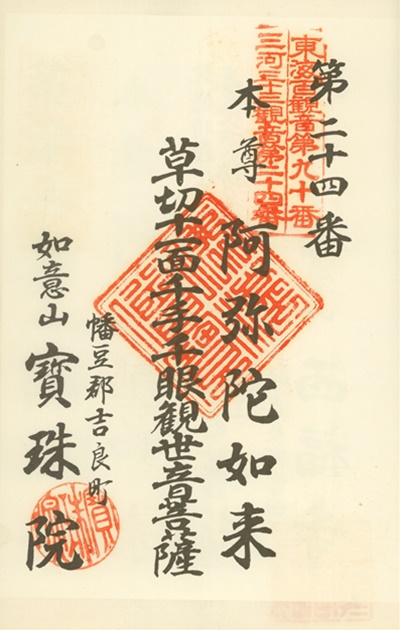 第二十四番
東海百観音第九十番
三河三十三観音第二十四番
本尊 阿弥陀如来
草切十一面千手千眼観世音菩薩
幡豆郡吉良町
如意山 寶珠院